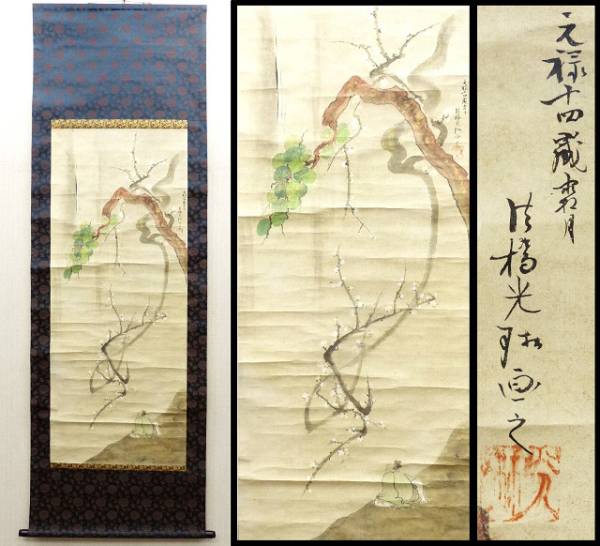 元禄十四歳霜月
法橋光琳画之